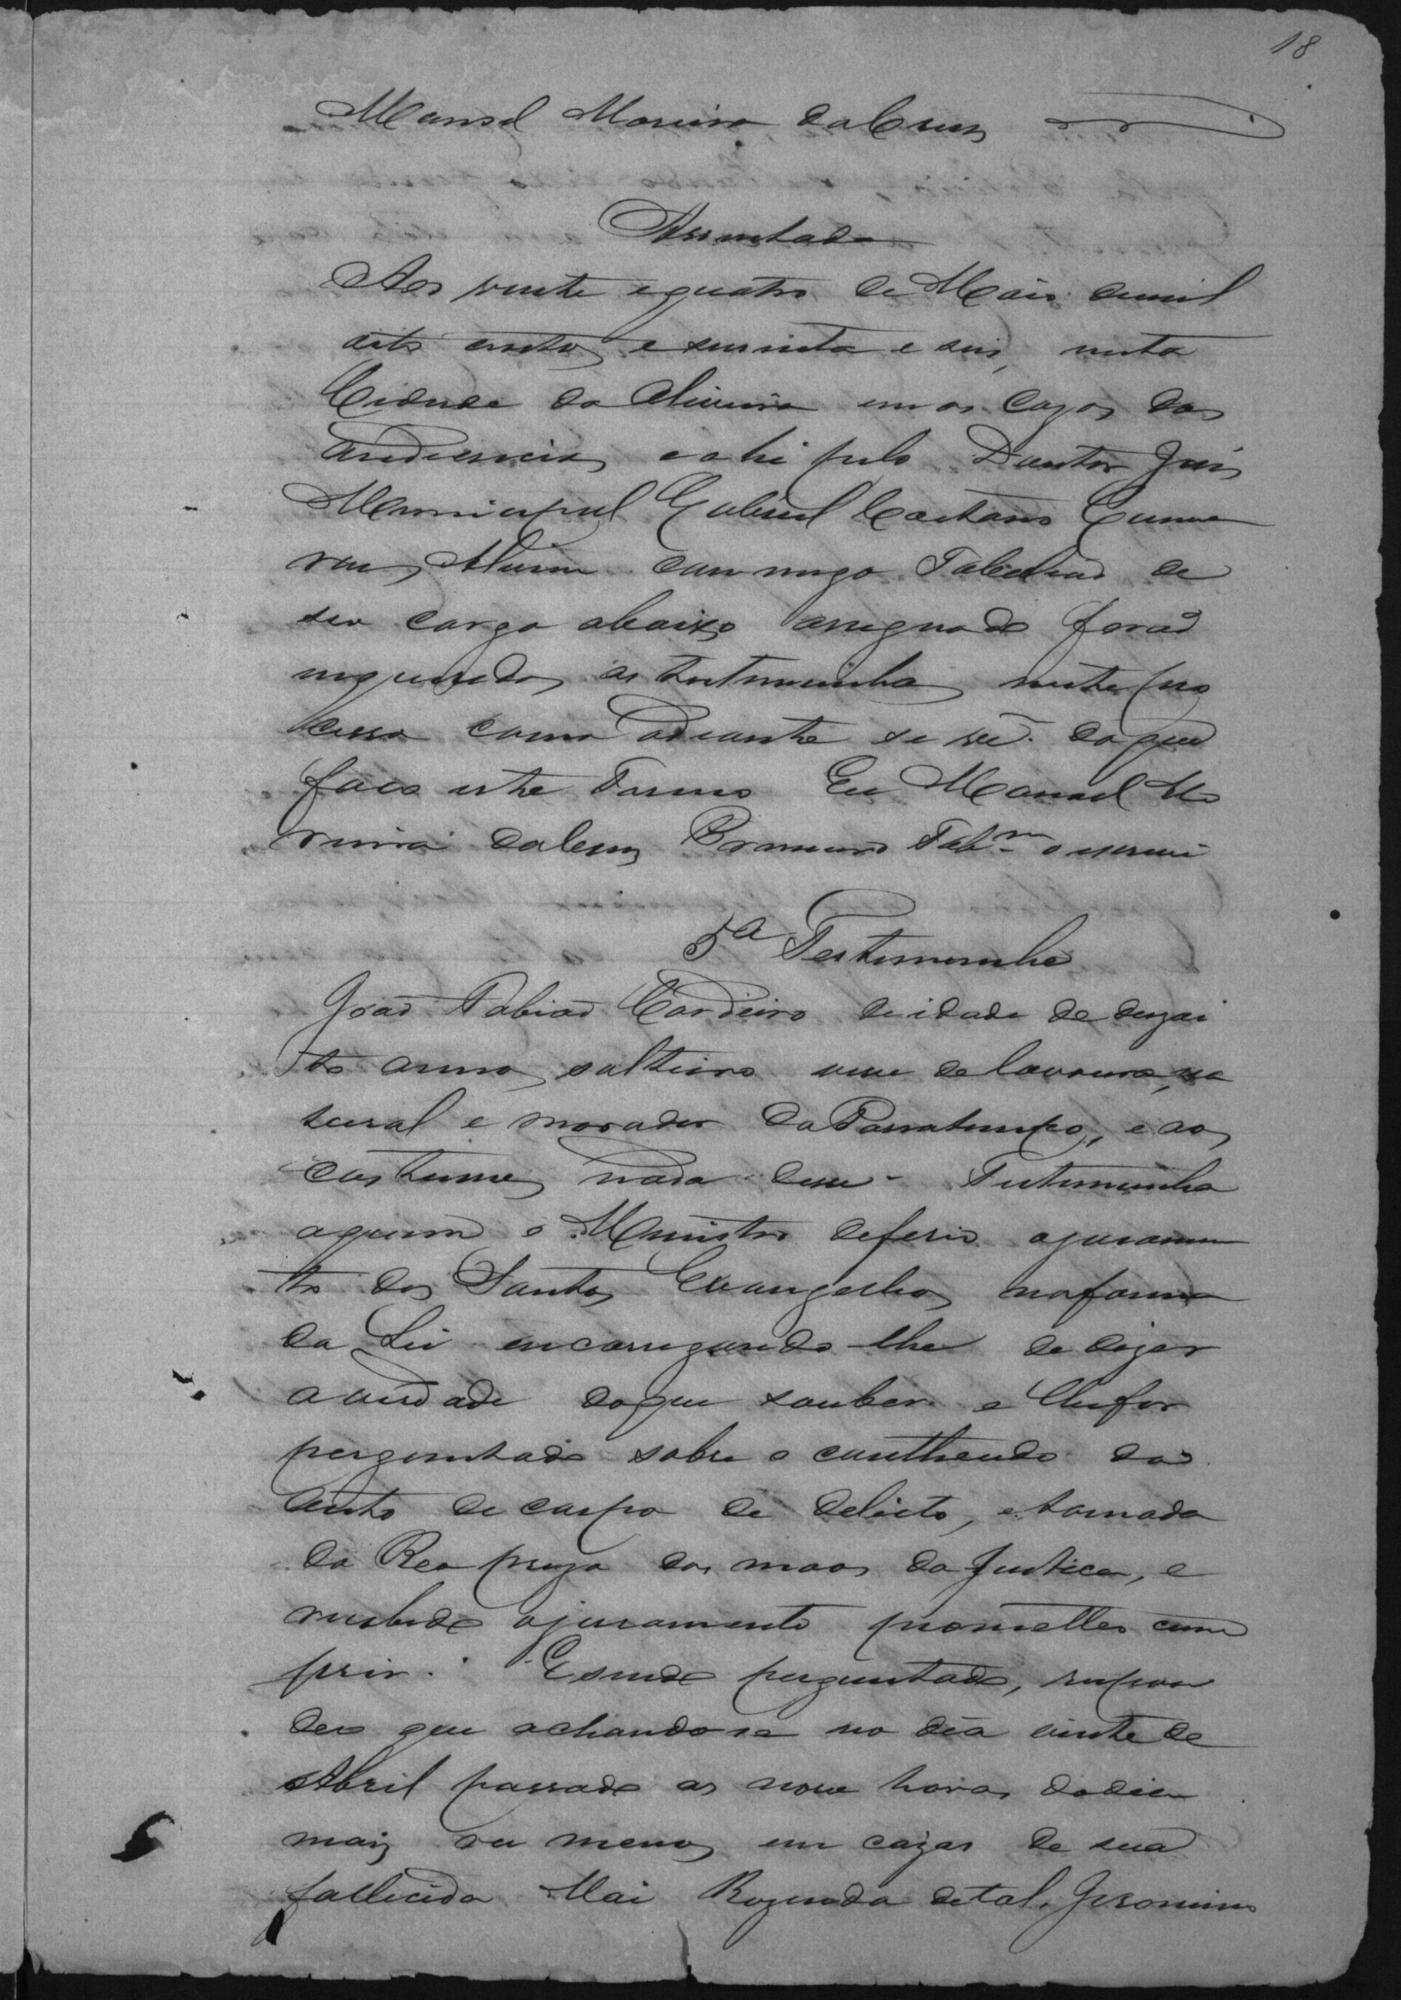 18
Manoel Moreira da Cruz
Assentada
Aos vinte e quatro de Maio de mil
oito centos e secenta e seis, nesta
Cidade da Oliveira em os cazas das
audiencias e ahi pelo Doutor Juis
Municipal Gabriel Caetano Guima
raes Alvim commigo Tabeliaõ de
seu cargo abaixo assignado foraõ
inqueridas as testemunhas neste pro
cesso como adiante se vê. do que
faço este Termo Eu Manoel Mo
reira da Cruz Primeiro Tab.m o escrevi
5a Testemunha
Joaõ Fabiaõ Cordeiro de idade de dezoi
to annos solteiro vive de lavoura, na
tural e morador da Passatempo, e aos
costumes nada disse - Testemunha
a quem o Menistro deferio o juramen
to dos Santos Evangelhos na forma
da Lei encarregando lhe de dizer
a verdade do que souber e lhe for
perguntado sobre o contheudo do
auto de corpo de delicto, e tomada
da Rea preza das maos da Justica, e
recebido o juramento prometteo cum
prir. E sendo perguntado, respon
deo que achando se no dia vinte de
Abril passado as nove horas do dia
mais ou menos em cazas de sua
fallecida Mai Rozenda de tal, Jeronimo